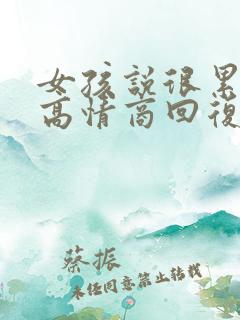 女孩說很累
高情商回復
蔡振
未任同意禁止转载